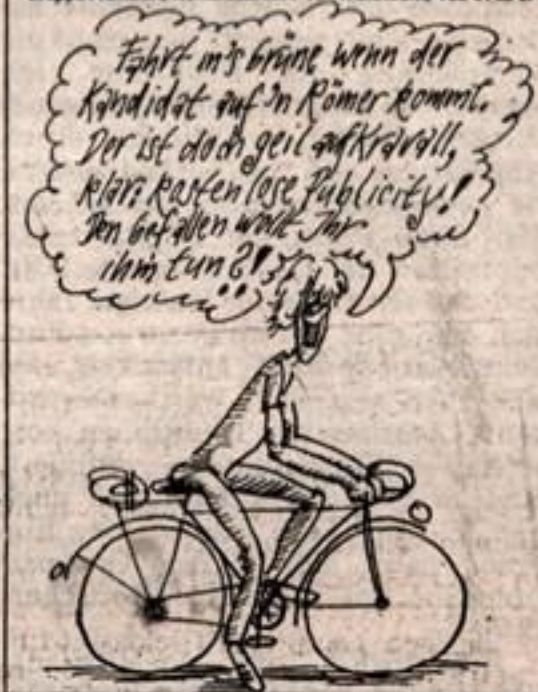 Fahrt in's Grüne wenn der
Kandidat auf'n Römer kommt.
Der ist doch geil auf Krawall,
klar: kostenlose Publicity!
Den Gefallen wollt Ihr
ihm tun?!